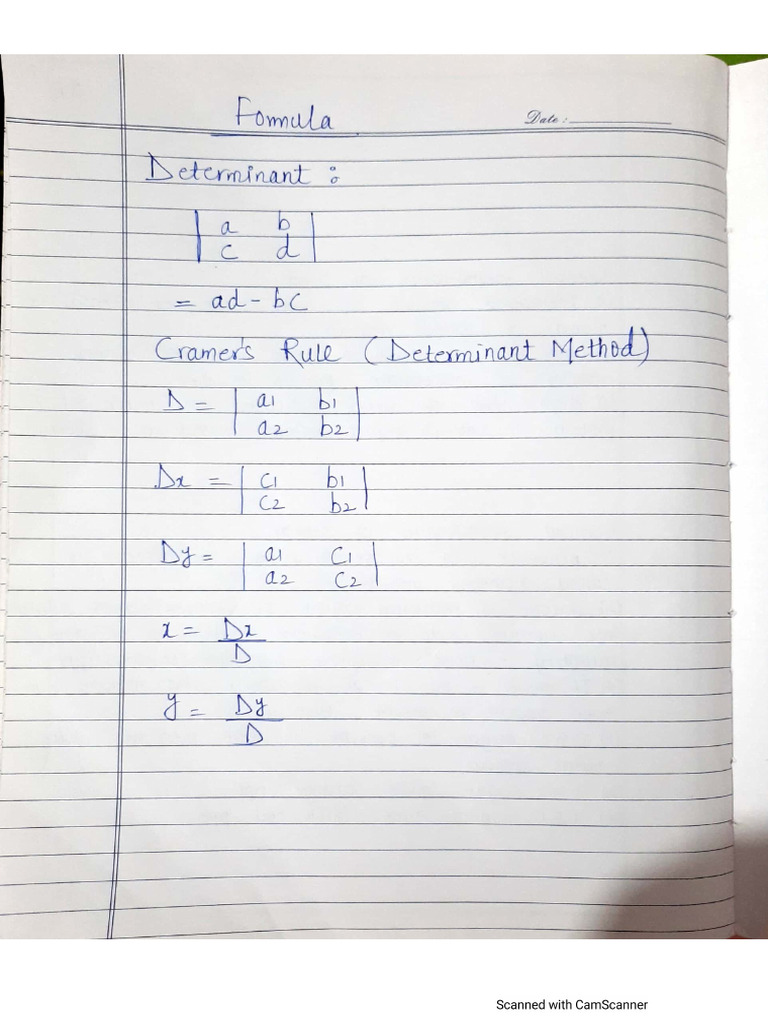 Formula
Date :
Determinant :
| a b |
| c d |
= ad - bc
Cramer's Rule (Determinant Method)
D = | a1 b1 |
| a2 b2 |
Dx = | c1 b1 |
| c2 b2 |
Dy = | a1 c1 |
| a2 c2 |
x = Dx
D
y = Dy
D
Scanned with CamScanner